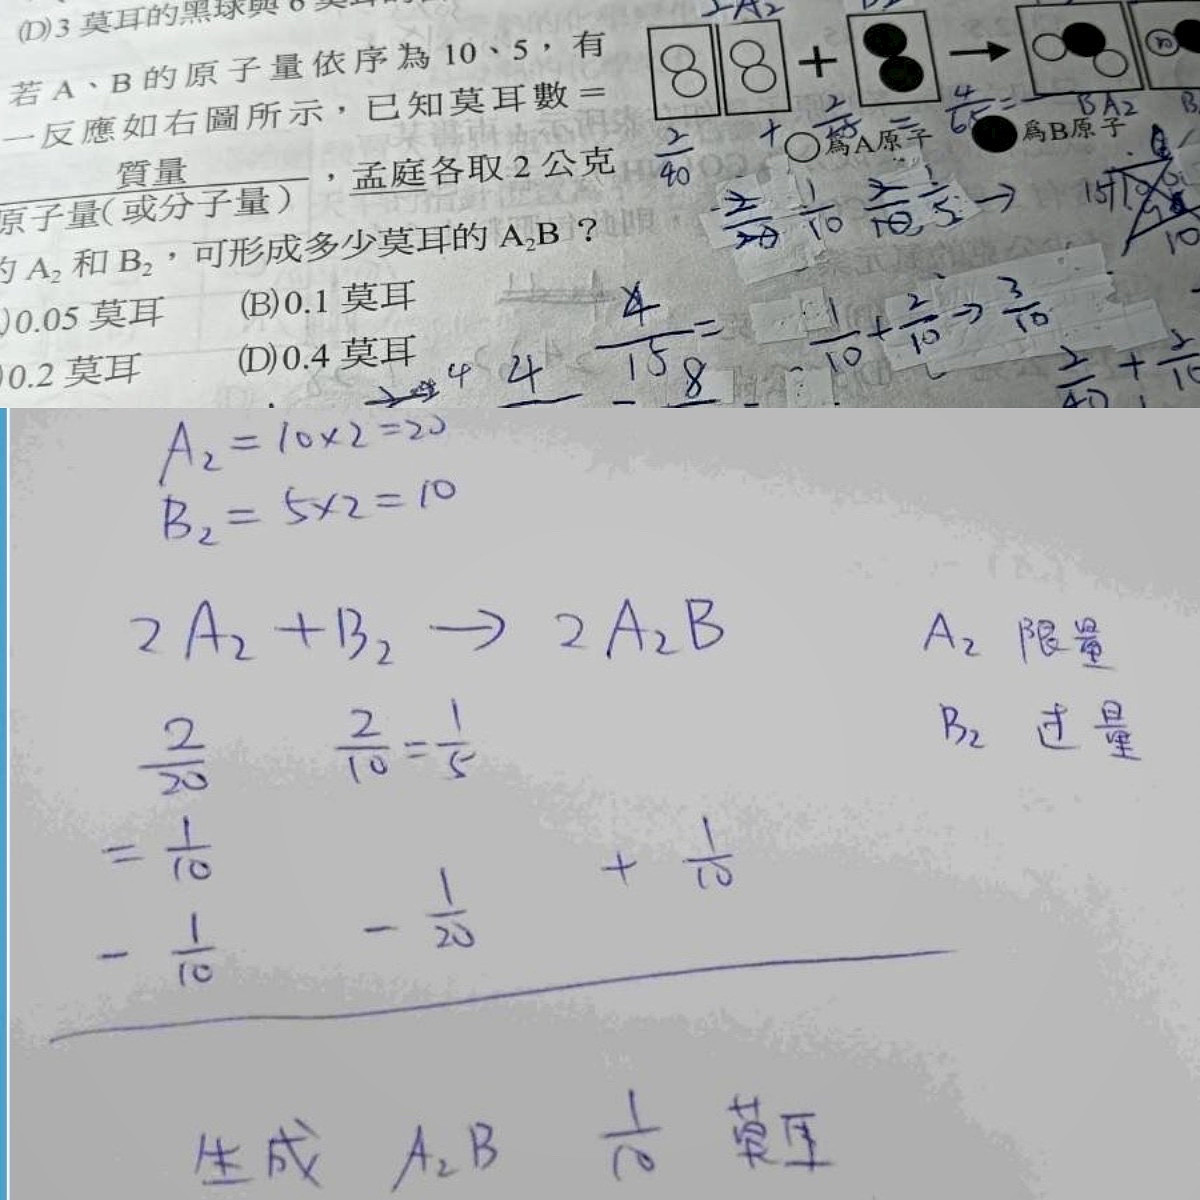 (D)3 莫耳的黑球與 6
若 A、B 的原子量依序為 10、5，有
一反應如右圖所示，已知莫耳數＝
質量
原子量(或分子量)
，孟庭各取 2 公克
的 A₂ 和 B₂，可形成多少莫耳的 A₂B？
)0.05 莫耳 (B)0.1 莫耳
)0.2 莫耳 (D)0.4 莫耳
2A₂
+ →
BA₂
○為A原子 ●為B原子
2/40 +
1/10 1/5 →
4/15 =
1/10 + 2/10 → 3/10
2/40 + 2/10
4 4 8
A₂ = 10×2 = 20
B₂ = 5×2 = 10
2A₂ + B₂ → 2A₂B
A₂ 限量
B₂ 过量
2/20 2/10 = 1/5
= 1/10
+ 1/10
- 1/10 - 1/20
生成 A₂B 1/10 莫耳